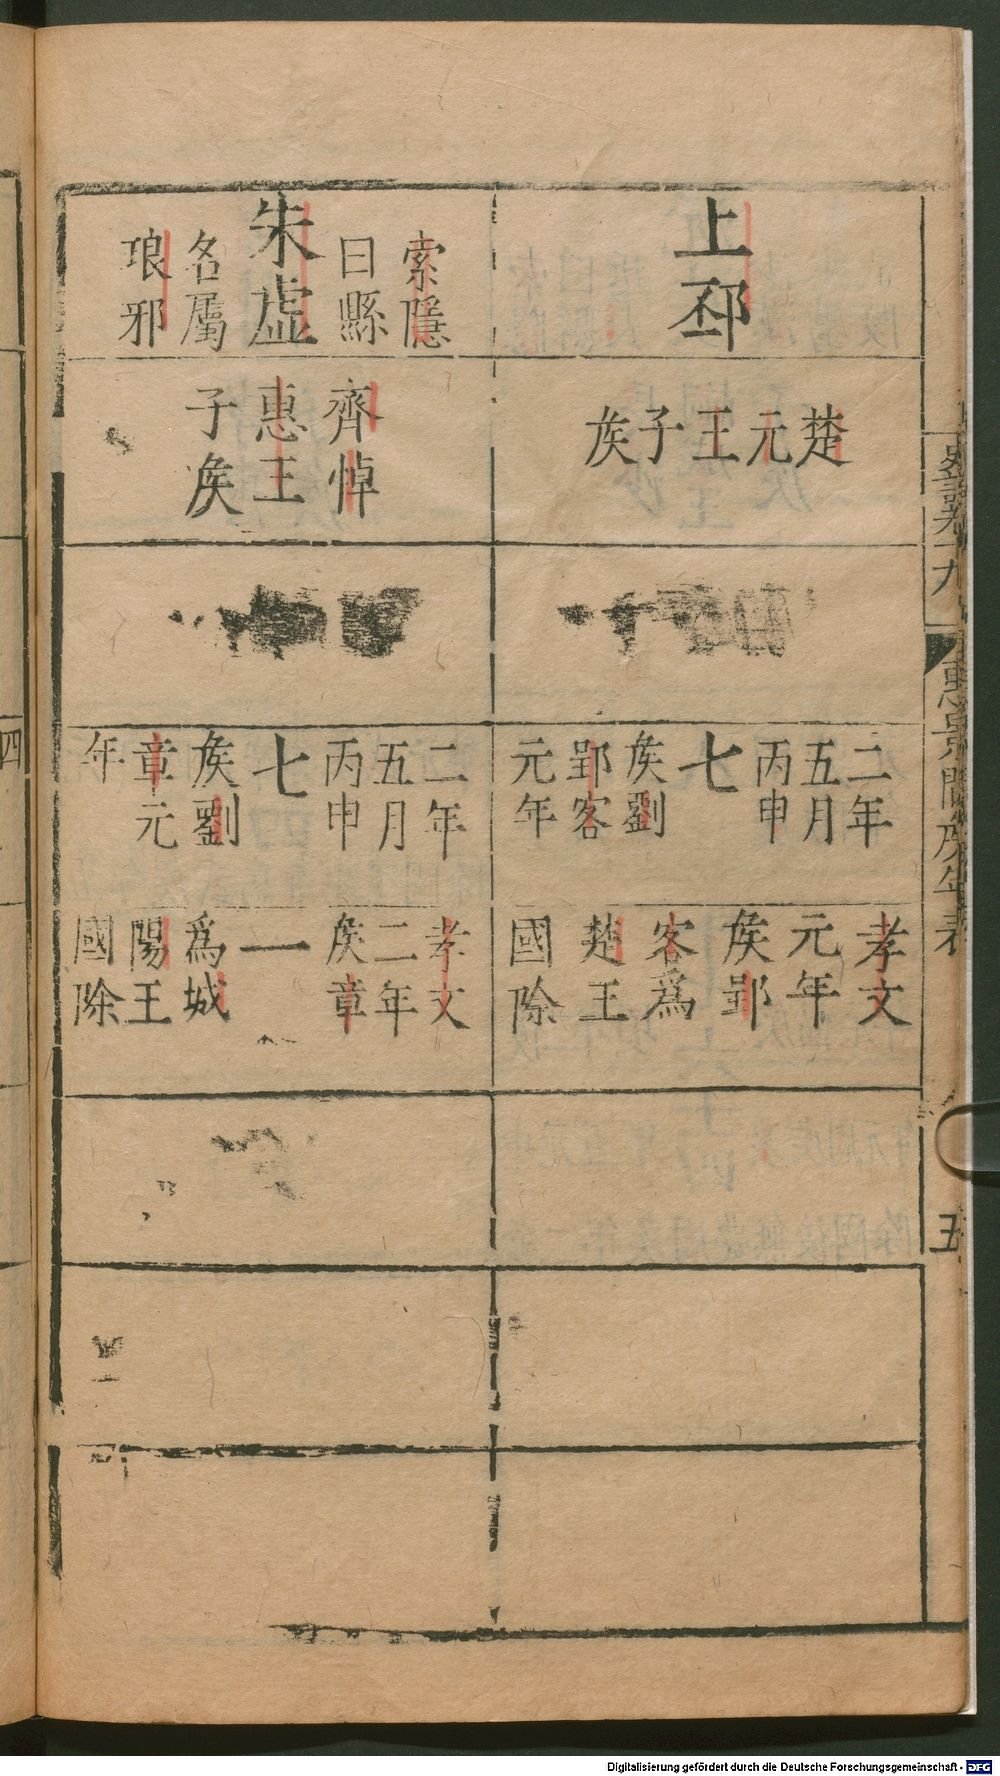 上邳
楚元王子侯
二年
五月
丙申
七
侯劉
郢客
元年
孝文
元年
侯郢
客爲
楚王
國除
索隱
曰縣
朱虛
名屬
琅邪
齊悼
惠王
子侯
二年
五月
丙申
七
侯劉
章元
年
孝文
二年
侯章
一
爲城
陽王
國除
惠景間侯年表
五
四
Digitalisierung gefördert durch die Deutsche Forschungsgemeinschaft - DFG